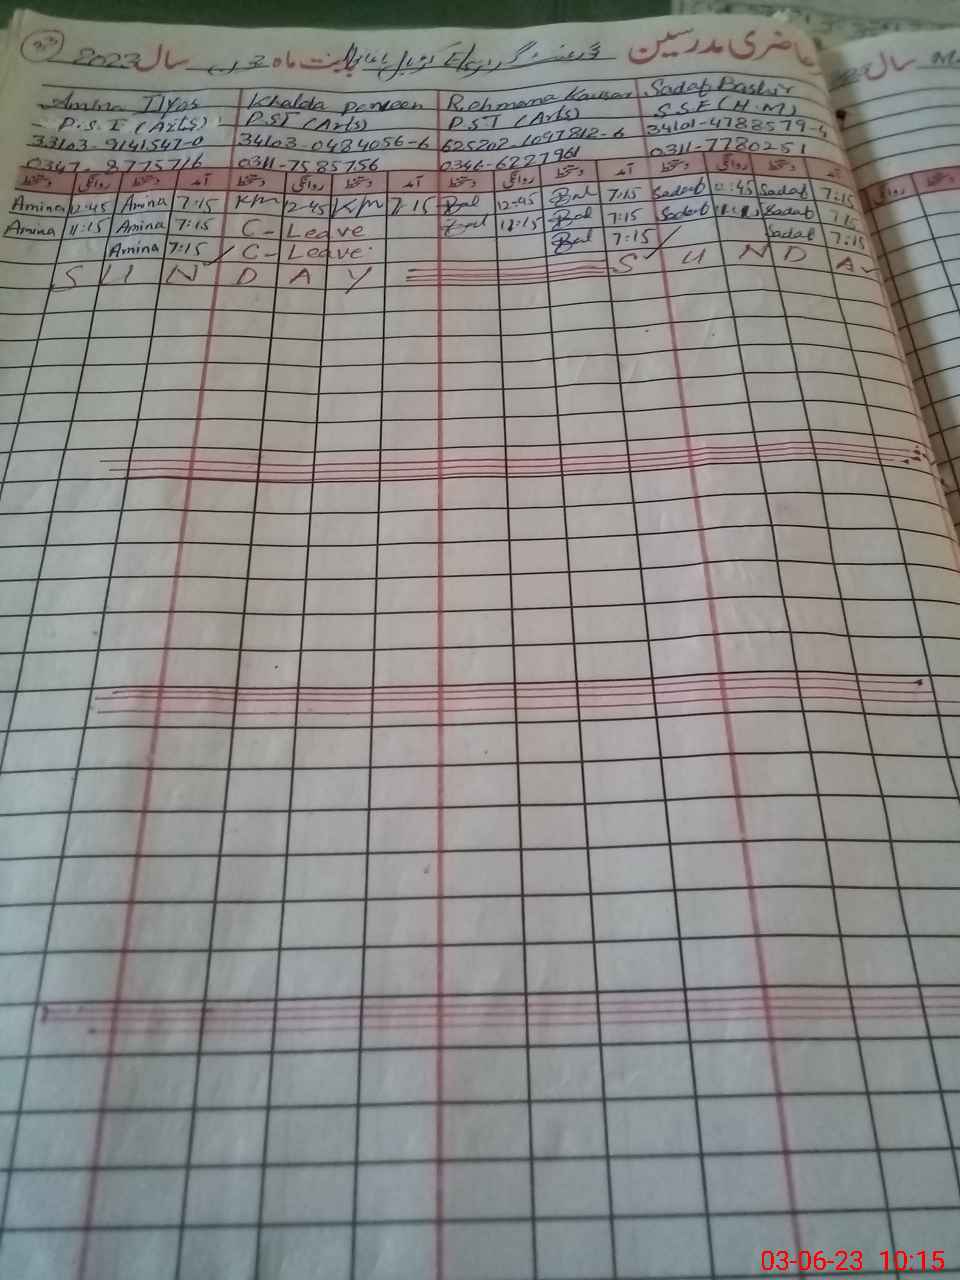 33 حاضری مدرسین بابت ماہ سال 2023
سال
Amina Ilyas Khalda Parveen Rehmana Kausar Sadaf Bashir
P.S.T (Arts) PST (Arts) PST (Arts) S.S.E (H.M)
33103-9141547-0 34103-0484056-6 34101-4788579-4
0347-8775716 0311-7585756 0346-6227961 0311-7780251
دستخط روانگی دستخط آمد دستخط روانگی دستخط آمد دستخط روانگی دستخط آمد دستخط روانگی دستخط آمد روانگی دستخط
Amina 12:45 Amina 7:15 Km 12-45 Km 7:15 12-45 7:15 Sadaf 12:45 Sadaf 7:15
Amina 11:15 Amina 7:15 C-Leave 7:15 Sadaf Sadaf 7:15
Amina 7:15 C-Leave 7:15 Sadaf 7:15
S U N D A Y S U N D A Y
03-06-23 10:15